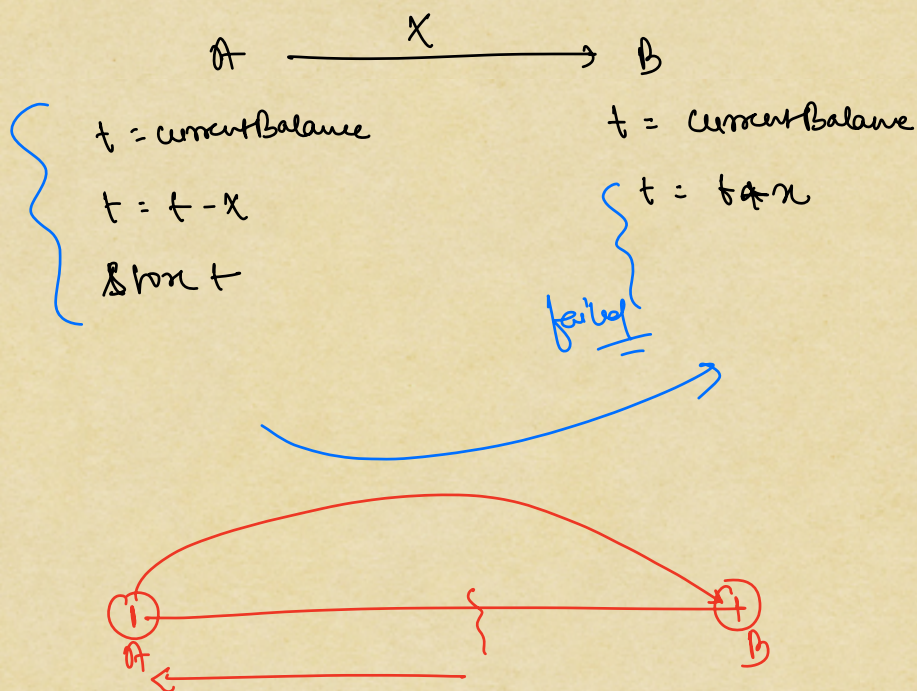 X
A B
t = currentBalance
t = t - x
Store t
t = currentBalance
t = t + x
failed
A
B